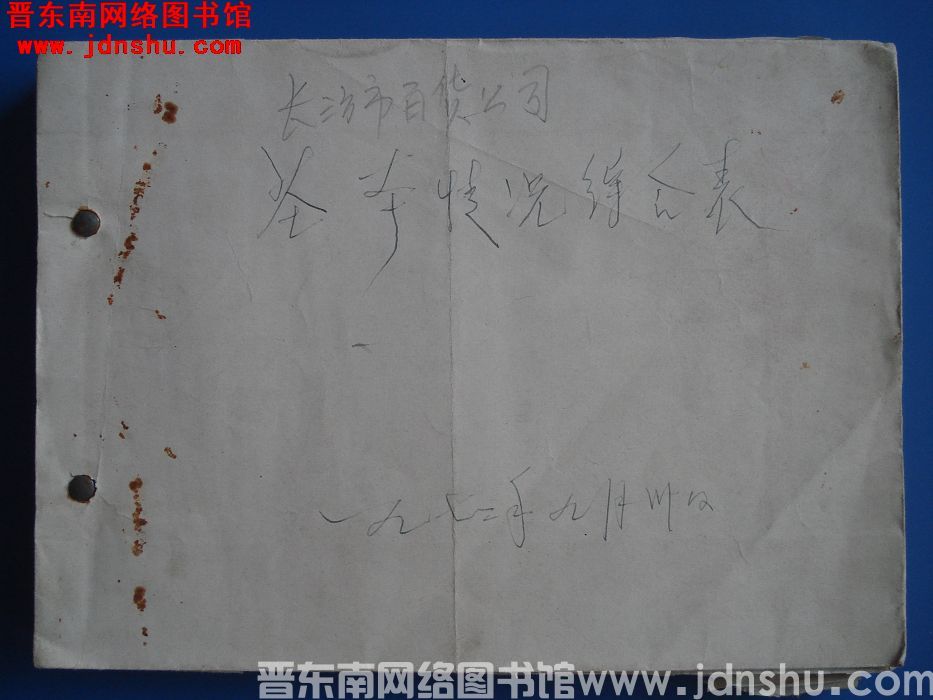 晋东南网络图书馆
www.jdnshu.com
长治市百货公司
基本情况综合表
一九七二年九月卅日
晋东南网络图书馆 www.jdnshu.com